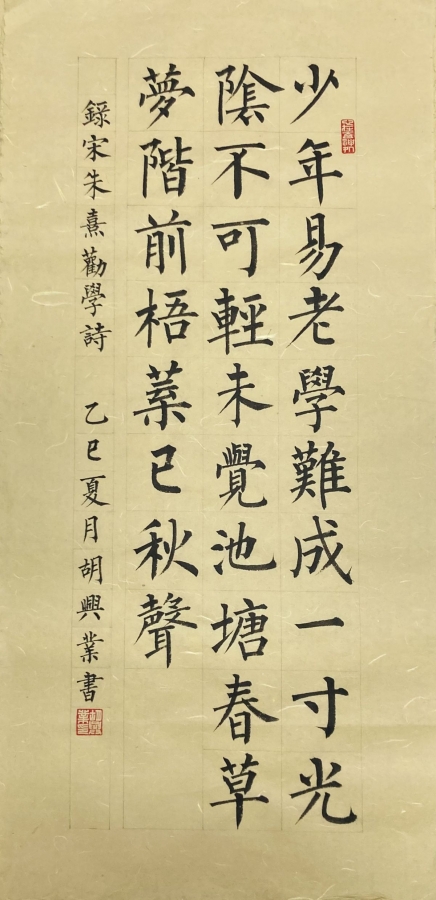 少年易老學難成一寸光
陰不可輕未覺池塘春草
夢階前梧葉已秋聲
錄宋朱熹勸學詩 乙巳夏月胡興業書